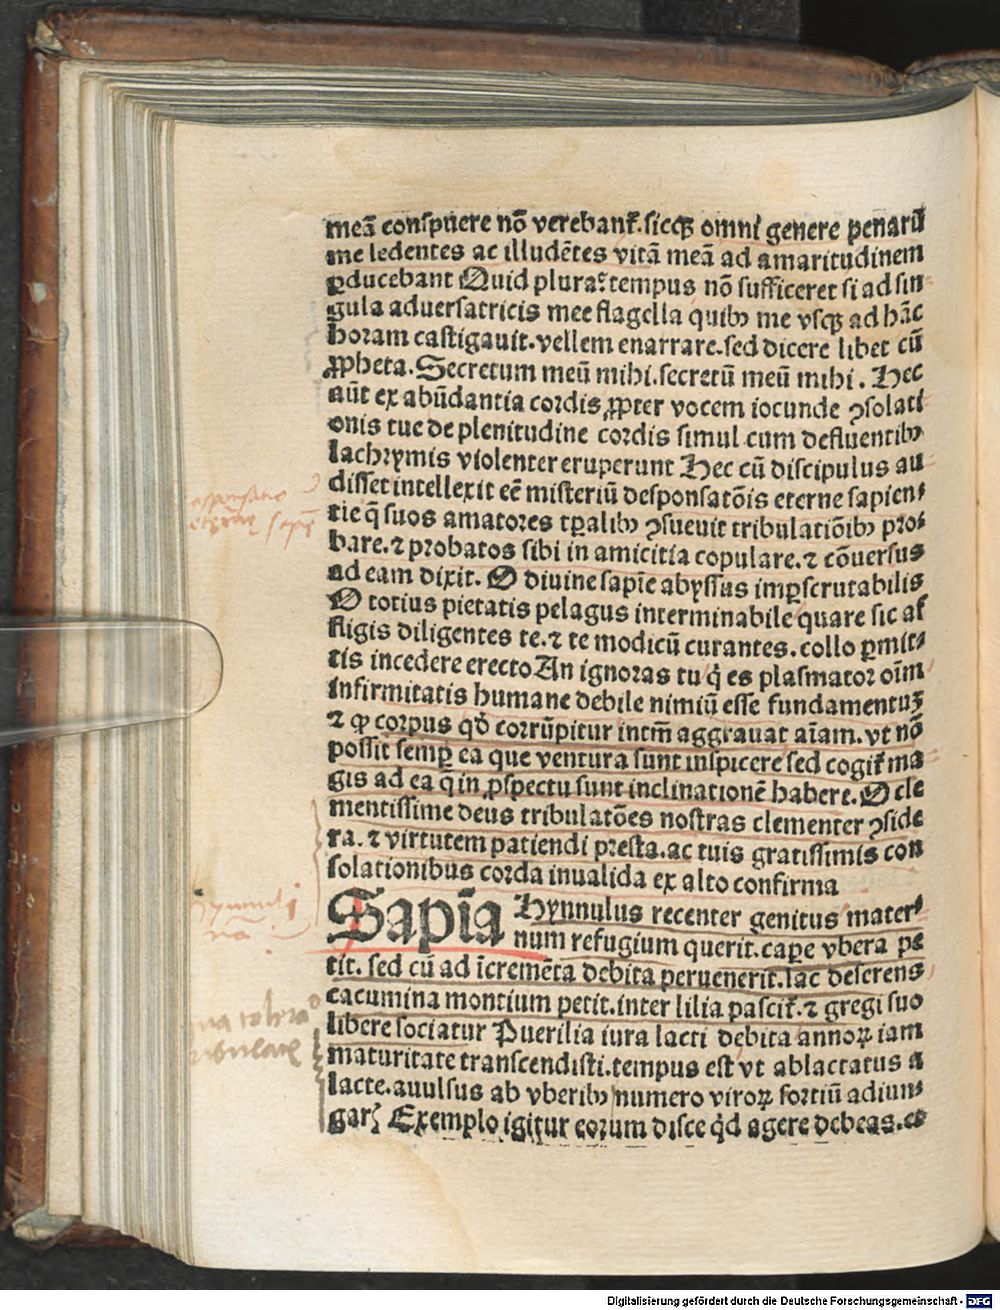 meā conspuere nō verebant᷑.sicqꝫ omni genere penarū
me ledentes ac illudētes vitā meā ad amaritudinem
ꝑducebant Quid plura? tempus nō sufficeret si ad sin⸗
gula aduersatricis mee flagella quibꝫ me vsqꝫ ad hāc
horam castigauit.vellem enarrare.sed dicere libet cū
ꝓpheta.Secretum meū mihi.secretū meū mihi. Hec
aūt ex abūdantia cordis ꝓpter vocem iocunde ꝯsolati
onis tue de plenitudine cordis simul cum defluentibꝫ
lachrymis violenter eruperunt Hec cū discipulus au⸗
disset intellexit eē misteriū desponsatōis eterne sapien⸗
tie q̄ suos amatores tꝑalibꝫ ꝯsueuit tribulatiōibꝫ pro⸗
bare.⁊ probatos sibi in amicitia copulare.⁊ cōuersus
ad eam dixit. O diuine sapīe abyssus imꝑscrutabilis
O totius pietatis pelagus interminabile quare sic af
fligis diligentes te.⁊ te modicū curantes.collo ꝑmit⸗
tis incedere erecto An ignoras tu q̇ es plasmator oīm
infirmitatis humane debile nimiū esse fundamentuꝫ
⁊ ꝙ corpus qd̄ corrūpitur intm̄ aggrauat aīam.vt nō
possit semꝑ ea que ventura sunt inspicere sed cogit᷑ ma
gis ad ea q in ꝓspectu sunt inclinationē habere.O cle
mentissime deus tribulatōes nostras clementer ꝯside
ra.⁊ virtutem patiendi presta.ac tuis gratissimis con
solationibus corda inualida ex alto confirma
Sapīa Hynnulus recenter genitus mater⸗
num refugium querit.caꝑe vbera pe
tit. sed cū ad īcremēta debita peruenerit.lac deserens
cacumina montium petit.inter lilia pascit᷑.⁊ gregi suo
libere sociatur Puerilia iura lacti debita annoꝝ iam
maturitate transcendisti.tempus est vt ablactatus a
lacte.auulsus ab vberibꝫ numero viroꝝ fortiū adiun⸗
garꝭ Exemplo igitur eorum disce qͥd agere debeas.et
Digitalisierung gefördert durch die Deutsche Forschungsgemeinschaft - DFG